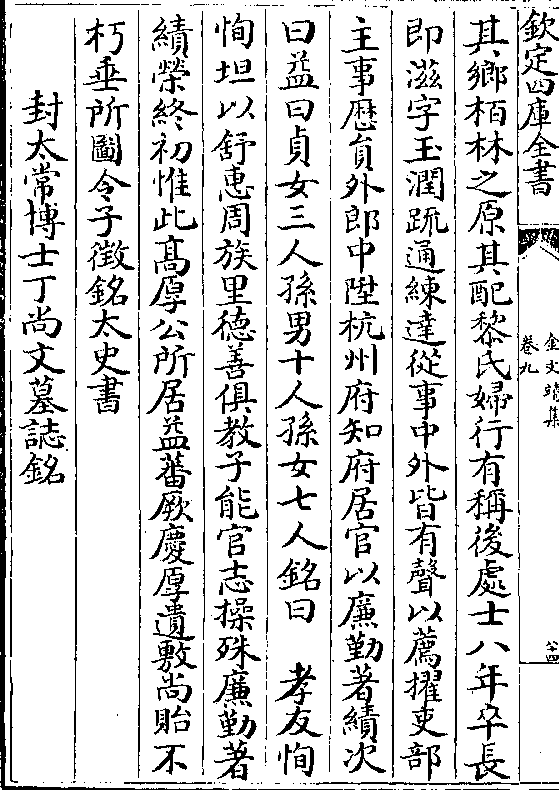 欽定四庫全書
金文靖集
卷九
其鄉栢林之原其配黎氏婦行有稱後處士八年卒長
即滋字玉潤疏通練達從事中外皆有聲以薦擢吏部
主事歴貟外郎中陞杭州府知府居官以廉勤著績次
曰益曰貞女三人孫男十人孫女七人銘曰　孝友恂
恂坦以舒恵周族里徳善俱教子能官志操殊廉勤著
績榮終初惟此髙厚公所居益蕃厥慶厚遺敷尚貽不
朽垂所圖令子徴銘太史書
封太常博士丁尚文墓誌銘